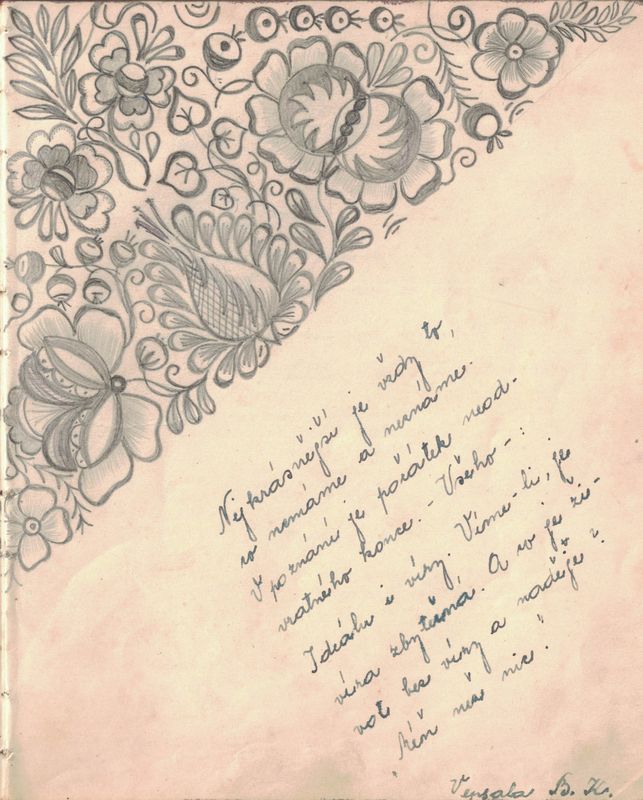 Nejkrásnější je vždy to,
co nemáme a neznáme.
V poznání je počátek neod-
vratného konce. - Všeho - :
Ideálu i víry. Víme-li, je
víra zbytečna. A co je ži-
vot bez víry a naděje?
Méň než nic!
Vepsala B. K.